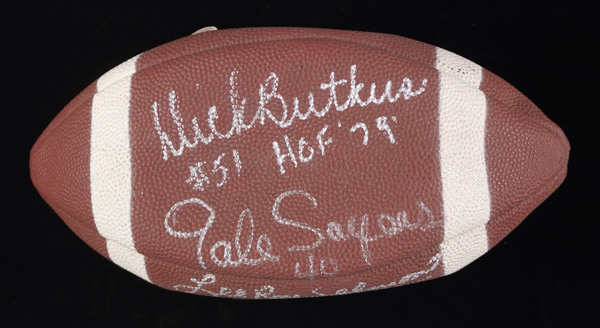 Dick Butkus
#51 HOF '79'
Gale Sayers